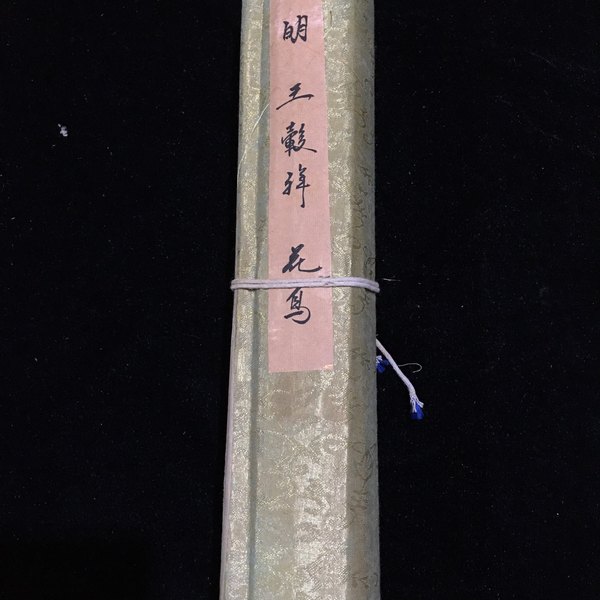 明 王穀祥 花鳥